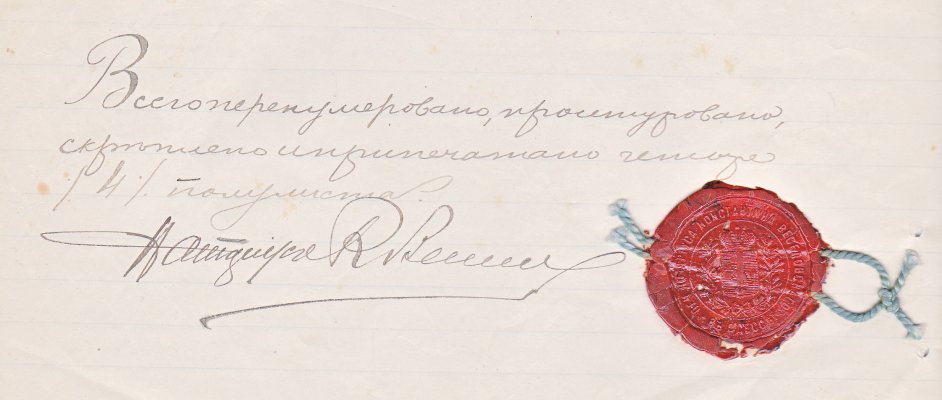 Всего перенумеровано, прошнуровано,
скрѣплено и припечатано четыре
/4/ полулиста.
Нотариусъ